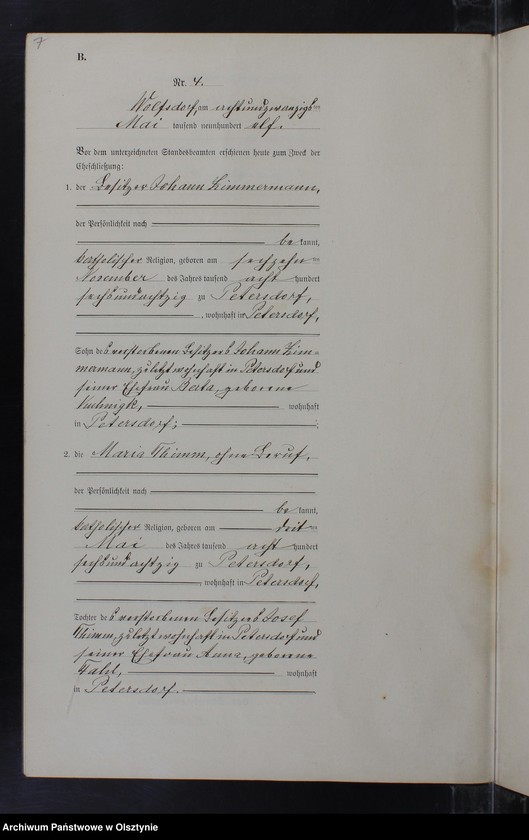 7
B.
Nr. 4.
Wolfsdorf, am achtundzwanzigsten
Mai tausend neunhundert elf.
Vor dem unterzeichneten Standesbeamten erschienen heute zum Zweck der
Eheschließung:
1. der Besitzer Johann Zimmermann,
der Persönlichkeit nach
bekannt,
katholischer Religion, geboren am sechzehnten
November des Jahres tausend acht hundert
sechsundachtzig zu Petersdorf,
, wohnhaft in Petersdorf,
Sohn des verstorbenen Besitzers Johann Zim-
mermann, zuletzt wohnhaft in Petersdorf und
seiner Ehefrau Berta, geborene
wohnhaft
in Petersdorf;
2. die Maria Thimm, ohne Beruf,
der Persönlichkeit nach
bekannt,
katholischer Religion, geboren am dritten
Mai des Jahres tausend acht hundert
sechsundachtzig zu Petersdorf,
, wohnhaft in Petersdorf,
Tochter des verstorbenen Besitzers Josef
Thimm, zuletzt wohnhaft in Petersdorf und
seiner Ehefrau Anna, geborene
wohnhaft
in Petersdorf.
Archiwum Państwowe w Olsztynie